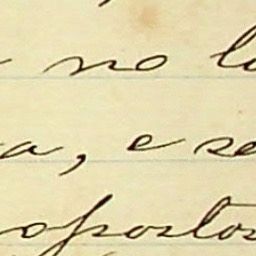 no la
a, e se
opostos